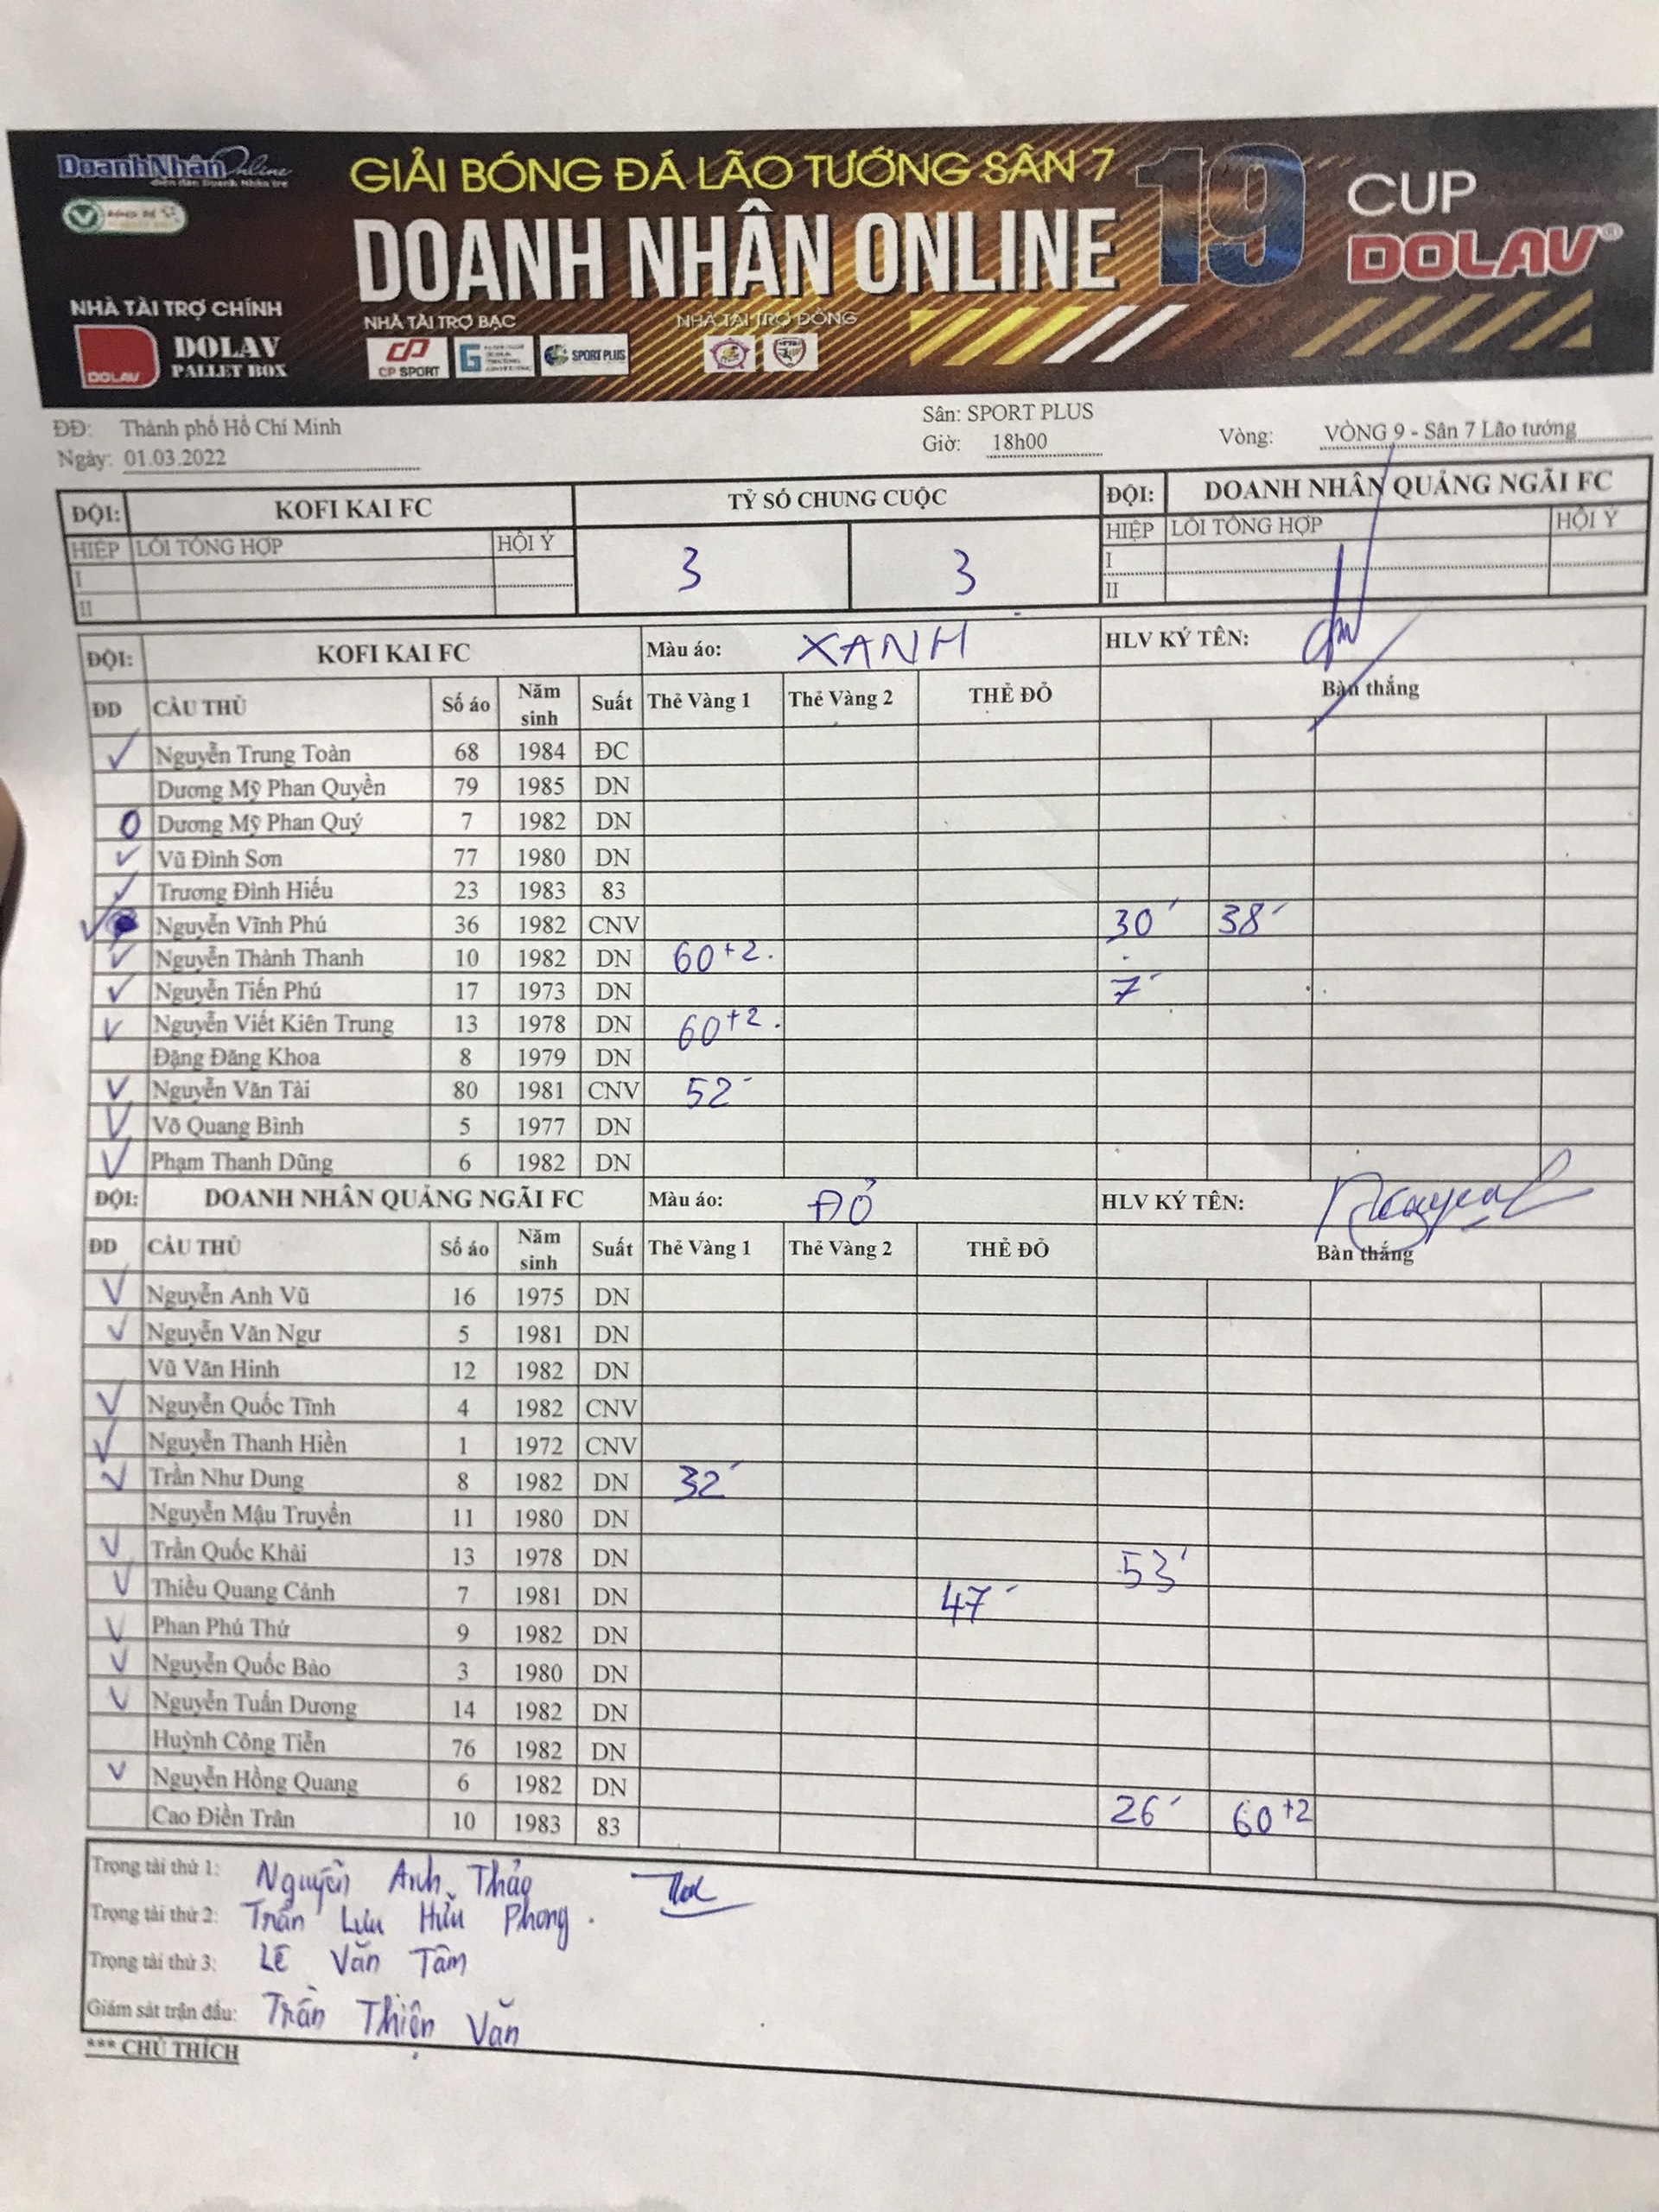 DoanhNhânOnline
GIẢI BÓNG ĐÁ LÃO TƯỚNG SÂN 7
DOANH NHÂN ONLINE 19
CUP
DOLAV
NHÀ TÀI TRỢ CHÍNH
DOLAV
DOLAV
PALLET BOX
NHÀ TÀI TRỢ BẠC
CP SPORT
SPORT PLUS
NHÀ TÀI TRỢ ĐỒNG
ĐĐ: Thành phố Hồ Chí Minh Sân: SPORT PLUS
Ngày: 01.03.2022 Giờ: 18h00 Vòng: VÒNG 9 - Sân 7 Lão tướng
ĐỘI: KOFI KAI FC TỶ SỐ CHUNG CUỘC ĐỘI: DOANH NHÂN QUẢNG NGÃI FC
HIỆP LỖI TỔNG HỢP HỘI Ý 3 3 HIỆP LỖI TỔNG HỢP HỘI Ý
I I
II II
ĐỘI: KOFI KAI FC Màu áo: XANH HLV KÝ TÊN:
ĐD CẦU THỦ Số áo Năm sinh Suất Thẻ Vàng 1 Thẻ Vàng 2 THẺ ĐỎ Bàn thắng
✓ Nguyễn Trung Toàn 68 1984 ĐC
Dương Mỹ Phan Quyền 79 1985 DN
0 Dương Mỹ Phan Quý 7 1982 DN
✓ Vũ Đình Sơn 77 1980 DN
✓ Trương Đình Hiếu 23 1983 83
✓ Nguyễn Vĩnh Phú 36 1982 CNV 30' 38'
✓ Nguyễn Thành Thanh 10 1982 DN 60+2
✓ Nguyễn Tiến Phú 17 1973 DN 7'
✓ Nguyễn Viết Kiên Trung 13 1978 DN 60+2
Đặng Đăng Khoa 8 1979 DN
✓ Nguyễn Văn Tài 80 1981 CNV 52'
✓ Võ Quang Bình 5 1977 DN
✓ Phạm Thanh Dũng 6 1982 DN
ĐỘI: DOANH NHÂN QUẢNG NGÃI FC Màu áo: ĐỎ HLV KÝ TÊN:
ĐD CẦU THỦ Số áo Năm sinh Suất Thẻ Vàng 1 Thẻ Vàng 2 THẺ ĐỎ Bàn thắng
✓ Nguyễn Anh Vũ 16 1975 DN
✓ Nguyễn Văn Ngư 5 1981 DN
Vũ Văn Hinh 12 1982 DN
✓ Nguyễn Quốc Tĩnh 4 1982 CNV
✓ Nguyễn Thanh Hiền 1 1972 CNV
✓ Trần Như Dung 8 1982 DN 32'
Nguyễn Mậu Truyền 11 1980 DN
✓ Trần Quốc Khải 13 1978 DN 53'
✓ Thiều Quang Cảnh 7 1981 DN 47'
✓ Phan Phú Thứ 9 1982 DN
✓ Nguyễn Quốc Bảo 3 1980 DN
✓ Nguyễn Tuấn Dương 14 1982 DN
Huỳnh Công Tiễn 76 1982 DN
✓ Nguyễn Hồng Quang 6 1982 DN
Cao Điền Trân 10 1983 83 26' 60+2
Trọng tài thứ 1: Nguyễn Anh Thảo
Trọng tài thứ 2: Trần Lưu Hữu Phong.
Trọng tài thứ 3: Lê Văn Tâm
Giám sát trận đấu: Trần Thiện Văn
*** CHÚ THÍCH